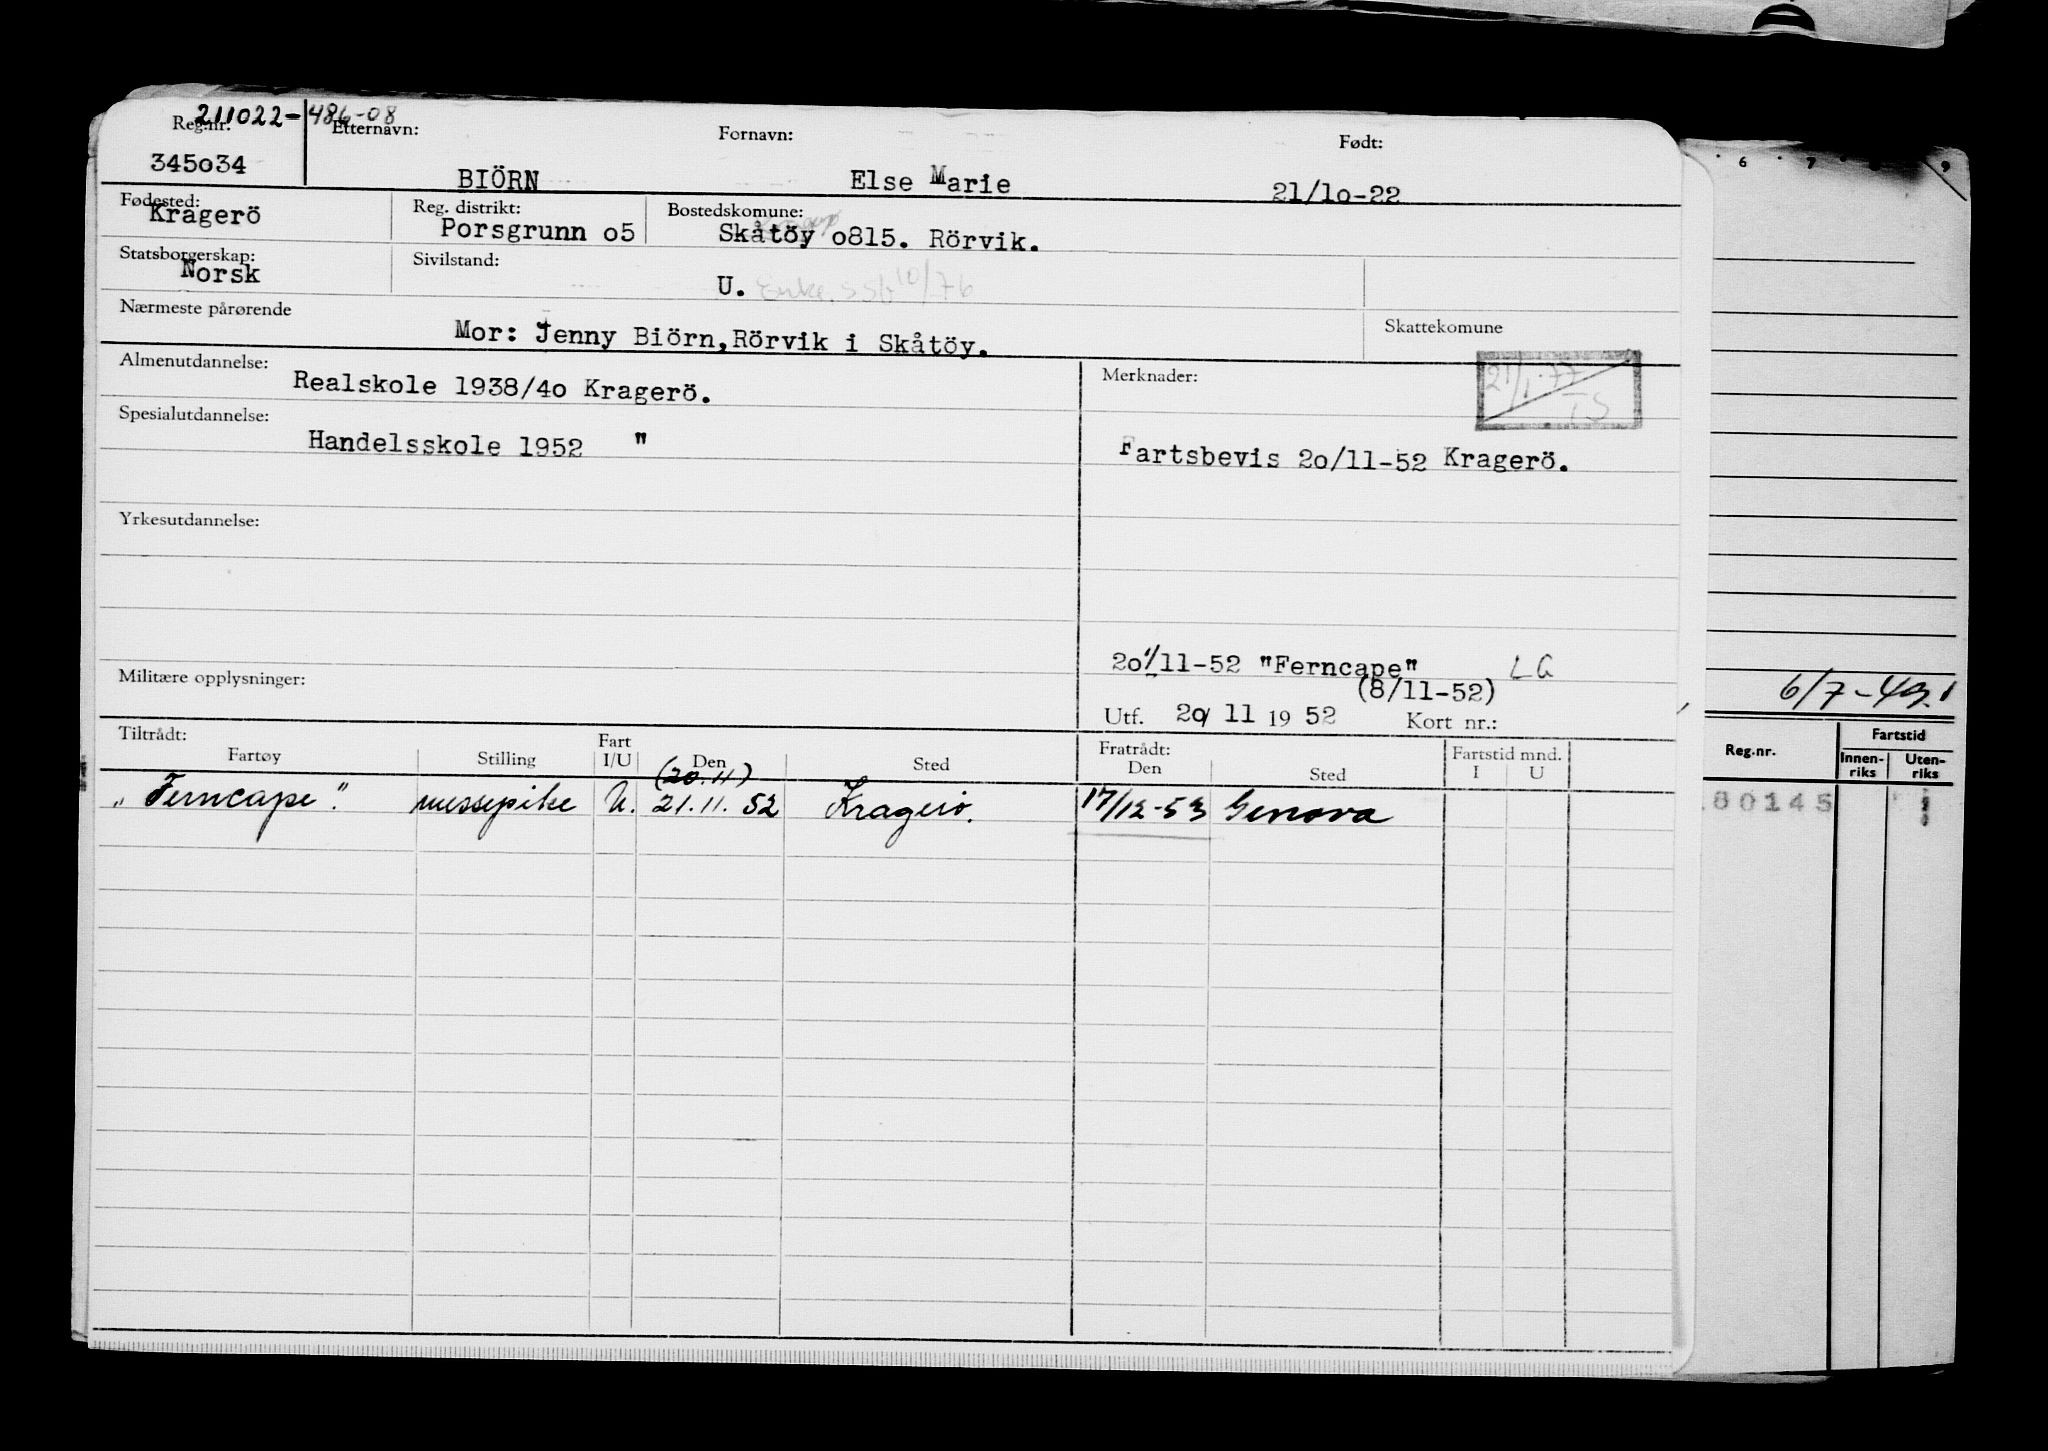 211022-486-08
Reg.nr. Etternavn: Fornavn: Født:
345o34 BIÖRN Else Marie 21/1o-22
Fødested: Reg. distrikt: Bostedskomune:
Kragerö Porsgrunn o5 Skåtöy o815. Rörvik.
Statsborgerskap: Sivilstand:
Norsk U. Enke 10/76
Nærmeste pårørende Skattekomune
Mor: Jenny Biörn,Rörvik i Skåtöy.
Almenutdannelse: Merknader:
21/1.77
TS
Realskole 1938/4o Kragerö.
Spesialutdannelse:
Handelsskole 1952 " Fartsbevis 2o/11-52 Kragerö.
Yrkesutdannelse:
2o/11-52 "Ferncape" LG
Militære opplysninger: (8/11-52)
Utf. 2o 11 19 52 Kort nr.:
Tiltrådt: Fart Fratrådt: Fartstid mnd.
Fartøy Stilling I/U Den Sted Den Sted I U
(20.11)
"Ferncape". messepike U. 21.11.52 Kragerø. 17/12-53 Genova
6 7 8 9
6/7-49.1
Reg.nr. Fartstid
Innen-riks Uten-riks
80145